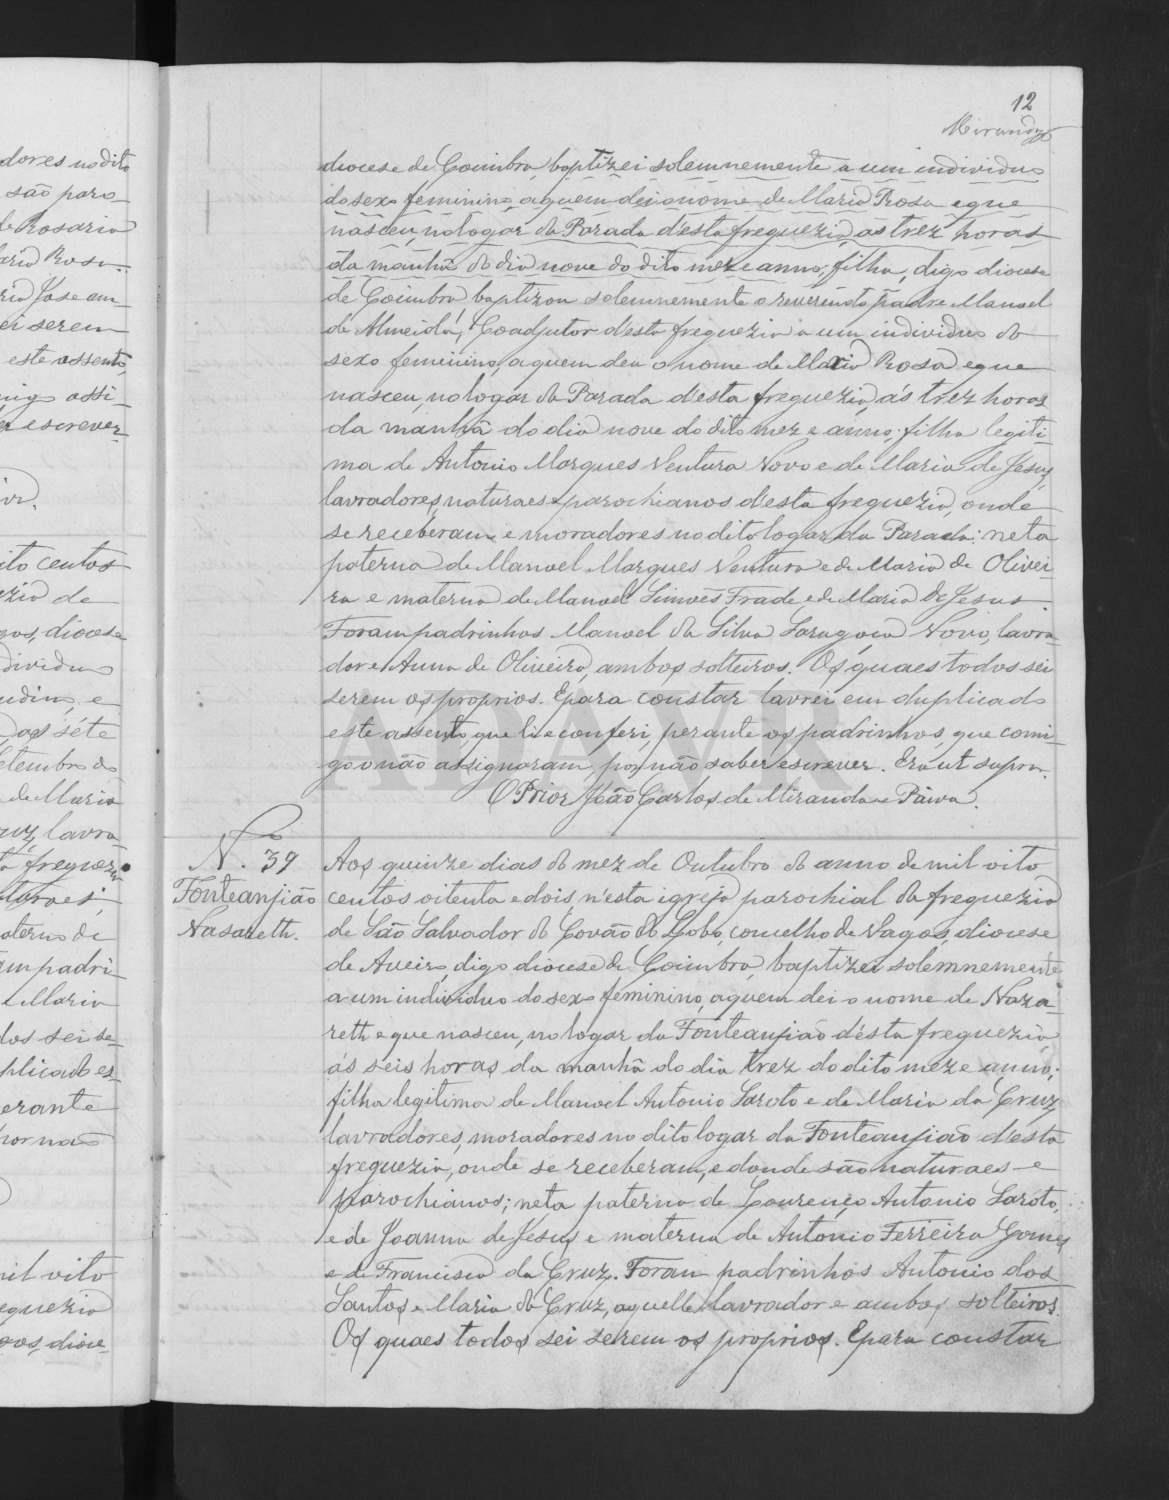 12
Miranda
dores no dito
são paro-
de Rosario
ria Rosa.
ria Jose am-
ei serem
este assento,
migo assi-
escrever.
oito centos
zia de
gos, diocese
dividuo
e
as séte
Setembro do
de Maria
ruz, lavra-
ta freguezia
turaes,
aterno de
am padri-
Maria
dos sei se-
plicado es-
perante
por não
mil oito
eguezia
gos, dioce-
diocese de Coimbra baptizei solemnemente a um individuo
do sexo feminino, a quem dei o nome de Maria Rosa e que
nasceu, no logar da Parada d'esta freguezia, ás trez horas
da manhã do dia nove do dito mez e anno; filha, digo diocese
de Coimbra, baptizou solemnemente o reverendo padre Manoel
de Almeida, Coadjutor d'esta freguezia a um individuo do
sexo feminino, a quem deu o nome de Maria Rosa e que
nasceu, no logar da Parada d'esta freguezia, ás trez horas
da manhã do dia nove do dito mez e anno; filha legiti-
ma de Antonio Marques Ventura Novo e de Maria de Jesus,
lavradores, naturaes e parochianos d'esta freguezia, onde
se receberam e moradores no dito logar da Parada: neta
paterna de Manoel Marques Ventura e de Maria de Olivei-
ra e materna de Manoel Simões Frade e de Maria de Jesus.
Foram padrinhos Manoel da Silva Saragoça Novo, lavra-
dor e Anna de Oliveira, ambos solteiros. Os quaes todos sei
serem os proprios. E para constar lavrei em duplicado
este assento, que li e conferi, perante os padrinhos, que comi-
go o não assignaram, por não saber escrever. Era ut supra.
O Prior João Carlos de Miranda e Paiva.
N.º 39
Fonteanjião
Nasareth.
Aos quinze dias do mez de Outubro do anno de mil oito
centos oitenta e dois, n'esta igreja parochial da freguezia
de São Salvador do Covão do Lobo, concelho de Vagos, diocese
de Aveiro, digo diocese de Coimbra, baptizei solemnemente
a um individuo do sexo feminino, a quem dei o nome de Naza-
reth e que nasceu, no logar da Fonteanjião d'ésta freguezia,
ás seis horas da manhã do dia trez do dito mez e anno;
filha legitima de Manoel Antonio Saroto e de Maria da Cruz,
lavradores, moradores no dito logar da Fonteanjião d'ésta
freguezia, onde se receberam, e donde são naturaes e
parochianos; neta paterna de Lourenço Antonio Saroto,
e de Joanna de Jesus e materna de Antonio Ferreira Gomes
e de Francisca da Cruz. Foram padrinhos Antonio dos
Santos e Maria da Cruz, aquelle lavrador e ambos solteiros.
Os quaes todos sei serem os proprios. E para constar
ADAVR